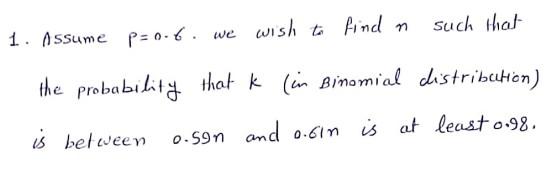 1. Assume p=0.6. we wish to find n such that
the probability that k (in Binomial distribution)
is between 0.59n and 0.61n is at least 0.98.